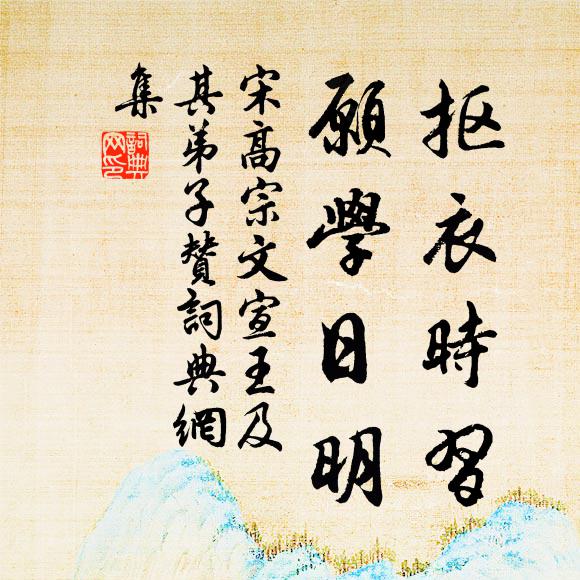 抠衣時習
願學日明
宋高宗文宣王及
其弟子赞詞典網
集
詞典網印